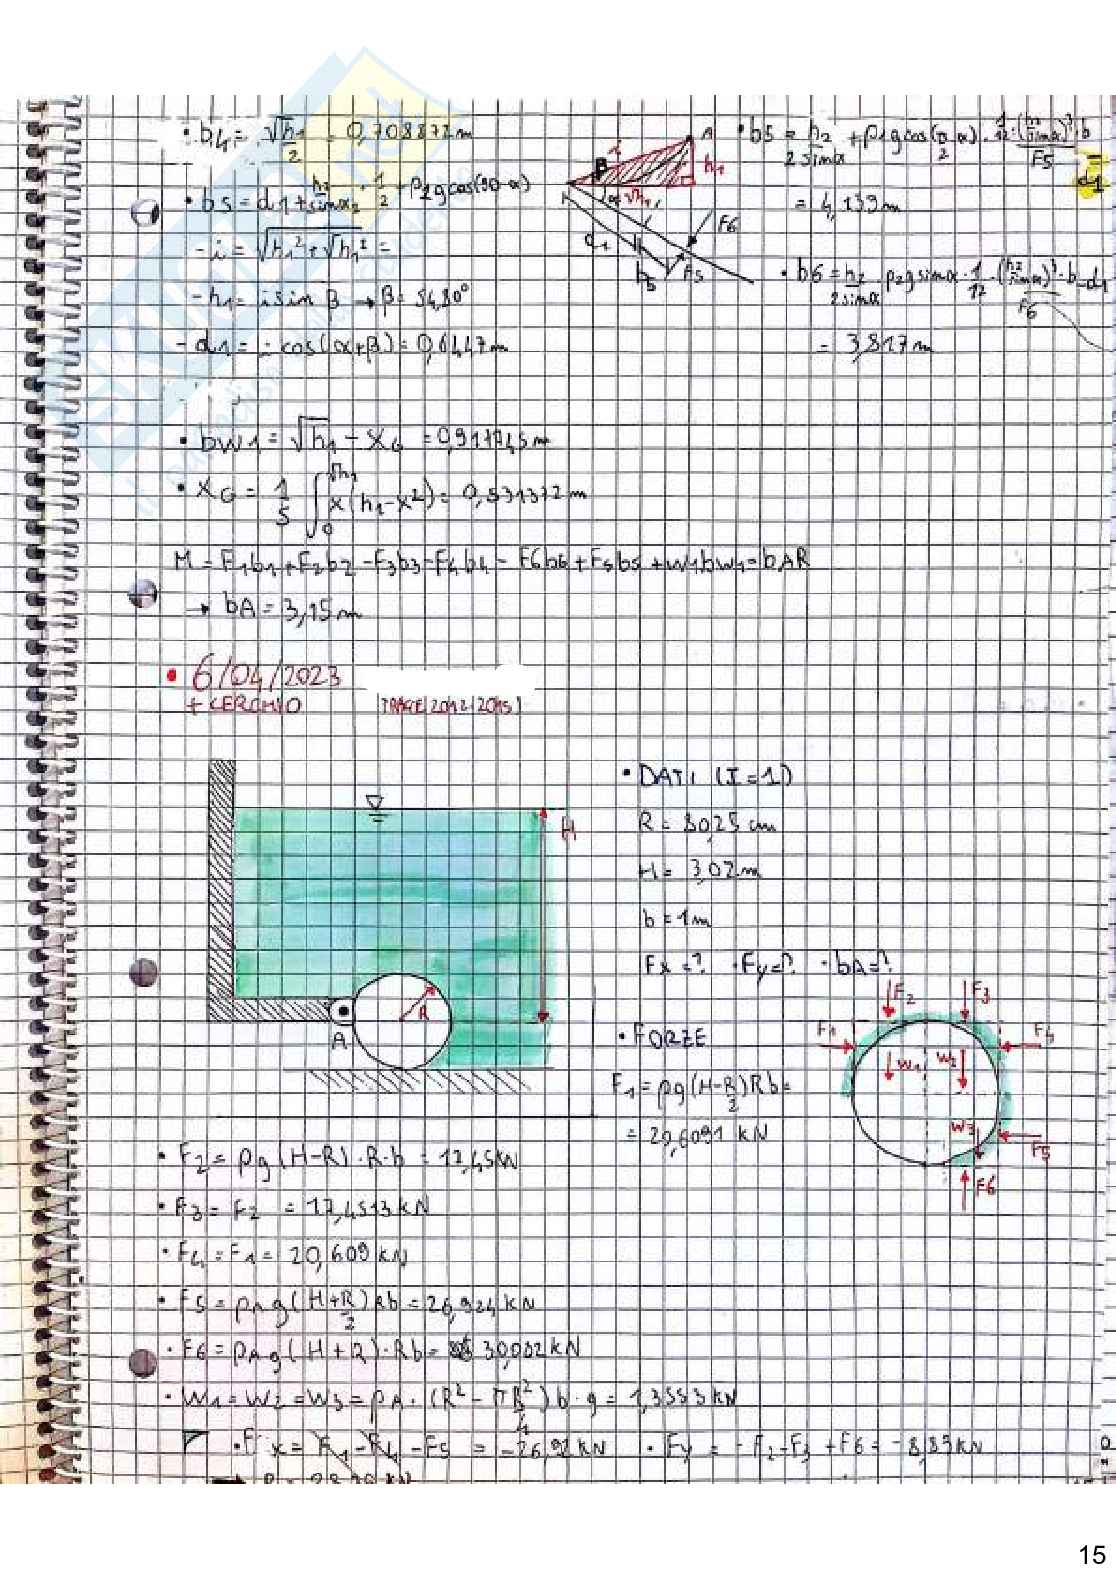 • b4 = √h1 / 2 = 0,708872 m
• b5 = d1 + h2/sinα2 · 1/2 + ρ2 g cos(90-α)
- i = √(h1² + √h1²) =
- h1 = i sin β → β = 54,80°
- d1 = i cos(α+β) = 0,6447 m
A
i
β
h1
α
√h1
d1
b5
F5
F6
• b5 = h2/(2 sinα) + ρ1 g cos(π/2 - α) · 1/12 · (h2/sinα)³ · b / F5 - d1
= 4,139 m
• b6 = h2/(2 sinα) · ρ2 g sinα · 1/12 · (h2/sinα)³ · b / F6 - d1
= 3,817 m
• bW1 = √h1 - XG = 0,911745 m
• XG = 1/S ∫0^√h1 x(h1 - x²) = 0,531372 m
M = F1b1 + F2b2 - F3b3 - F4b4 - F6b6 + F5b5 + W1bW1 = bAR
→ bA = 3,15 m
• 6/04/2023
+ CERCHIO
H
R
A
• DATI (I = 1)
R = 80,25 cm
H = 3,02 m
b = 1 m
Fx = ? · Fy = ? · bA = ?
• FORZE
F1 = ρg(H - R/2)Rb =
= 20,6091 kN
F1
F2
F3
F4
W1
W2
W3
F5
F6
• F2 = ρg(H-R)·R·b = 17,45 kN
• F3 = F2 = 17,4513 kN
• F4 = F1 = 20,609 kN
• F5 = ρA g(H + R/2)Rb = 26,924 kN
• F6 = ρA g(H + R)·Rb = 30,082 kN
• W1 = W2 = W3 = ρA · (R² - πR²/4) b · g = 1,3553 kN
• Fx = F1 - F4 - F5 = -26,92 kN • Fy = -F2 - F3 + F6 = -8,83 kN
15